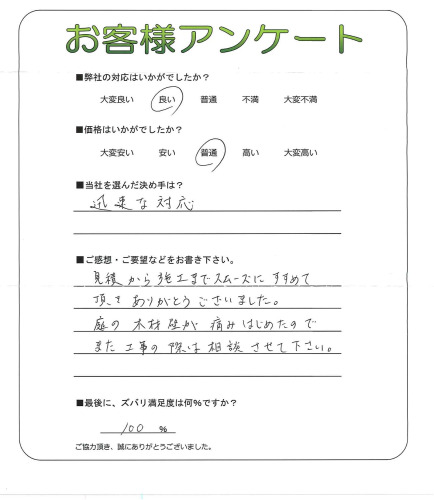 お客様アンケート
■弊社の対応はいかがでしたか?
大変良い 良い 普通 不満 大変不満
■価格はいかがでしたか?
大変安い 安い 普通 高い 大変高い
■当社を選んだ決め手は?
迅速な対応
■ご感想・ご要望などをお書き下さい。
見積から施工までスムーズにすすめて
頂きありがとうございました。
庭の木材壁が痛みはじめたので
また工事の際は相談させて下さい。
■最後に、ズバリ満足度は何%ですか?
100 %
ご協力頂き、誠にありがとうございました。